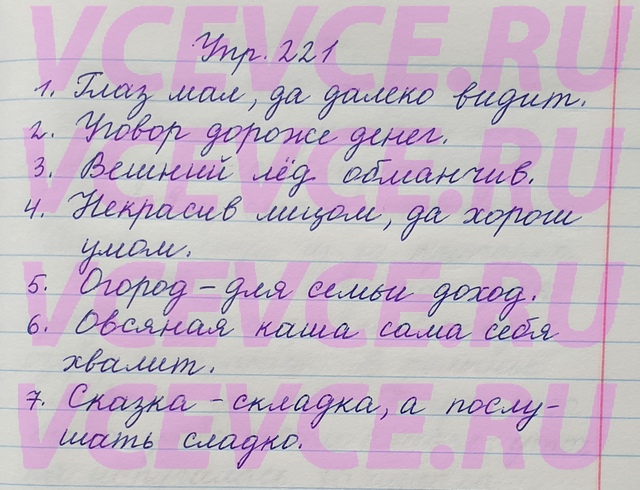 Упр. 221
1. Глаз мал, да далеко видит.
2. Уговор дороже денег.
3. Вешний лёд обманчив.
4. Некрасив лицом, да хорош
умом.
5. Огород - для семьи доход.
6. Овсяная каша сама себя
хвалит.
7. Сказка - складка, а послу-
шать сладко.
VCEVCE.RU
VCEVCE.RU
VCEVCE.RU
VCEVCE.RU